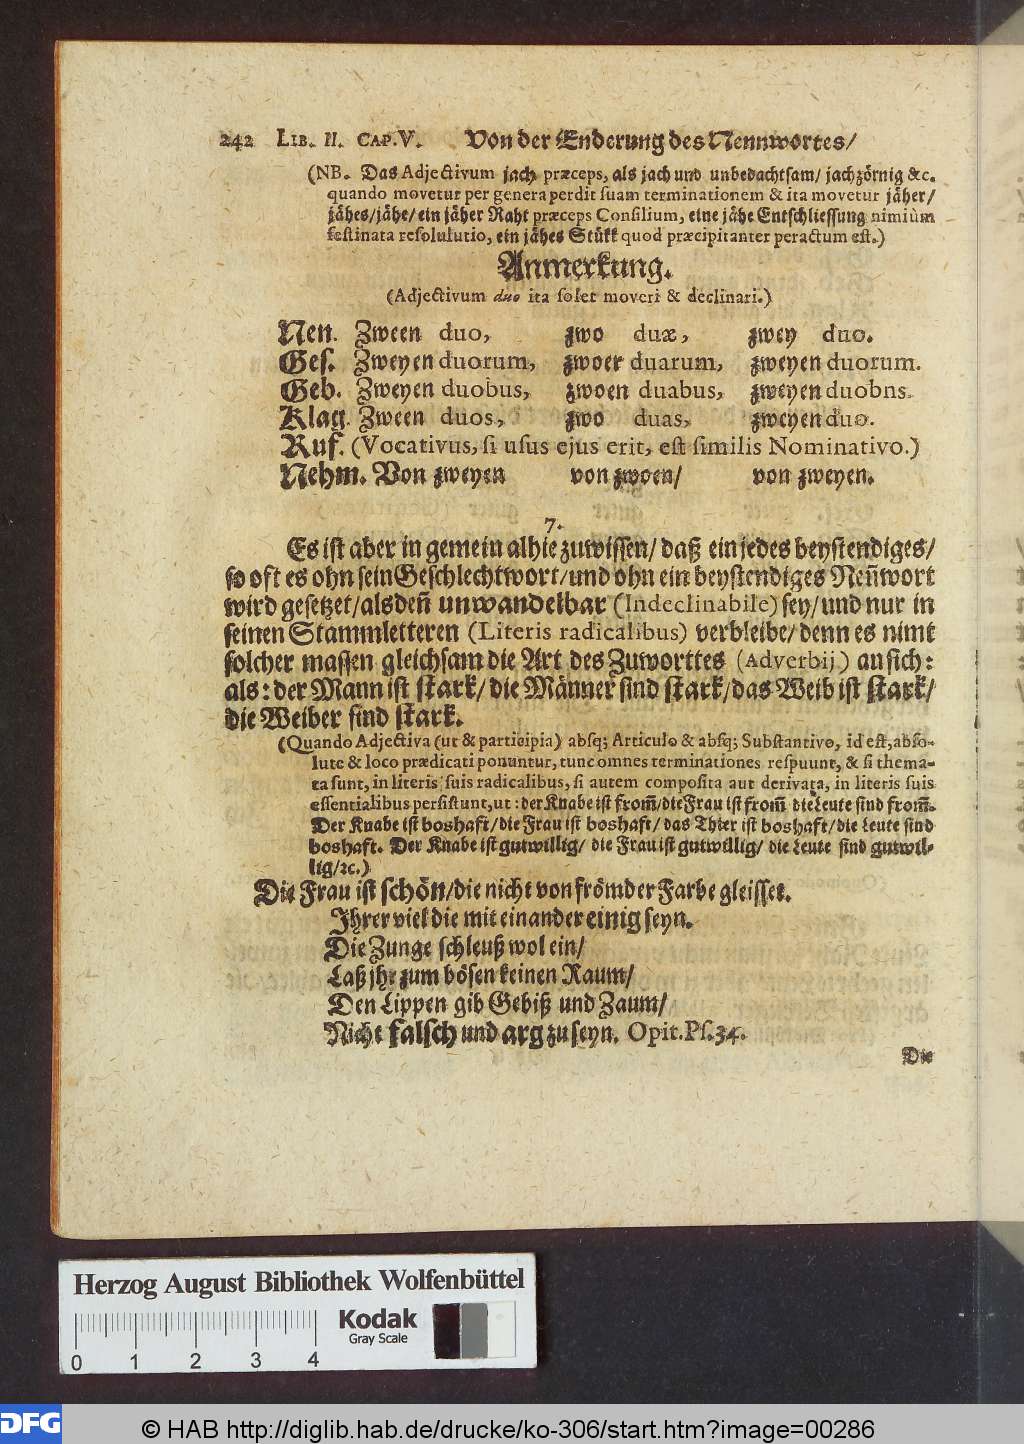 242 LIB. II. CAP. V. Von der Enderung des Nennwortes/
(NB. Das Adjectivum jach præceps, als jach und unbedachtsam/ jachzörnig &c.
quando movetur per genera perdit suam terminationem & ita movetur jäher/
jähes/jähe/ ein jäher Raht præceps Consilium, eine jähe Entschliessung nimiùm
festinata resolulutio, ein jähes Stükk quod præcipitanter peractum est.)
Anmerkung.
(Adjectivum duo ita solet moveri & declinari.)
Nen. Zween duo, zwo duæ, zwey duo.
Ges. Zweyen duorum, zwoer duarum, zweyen duorum.
Geb. Zweyen duobus, zwoen duabus, zweyen duobns.
Klag. Zween duos, zwo duas, zweyen duo.
Ruf. (Vocativus, si usus ejus erit, est similis Nominativo.)
Nehm. Von zweyen von zwoen/ von zweyen.
7.
Es ist aber in gemein alhie zuwissen/ daß ein jedes beystendiges/
so oft es ohn sein Geschlechtwort/ und ohn ein beystendiges Neñwort
wird gesetzet/ alsdeñ unwandelbar (Indeclinabile) sey/ und nur in
seinen Stammletteren (Literis radicalibus) verbleibe/ denn es nimt
solcher massen gleichsam die Art des Zuworttes (Adverbij) an sich:
als: der Mann ist stark/ die Männer sind stark/ das Weib ist stark/
die Weiber sind stark.
(Quando Adjectiva (ut & participia) absq; Articulo & absq; Substantivo, id est, abso-
lute & loco prædicati ponuntur, tunc omnes terminationes respuunt, & si thema-
ta sunt, in literis suis radicalibus, si autem composita aut derivata, in literis suis
essentialibus persistunt, ut: der Knabe ist from̃/ die Frau ist from̃ die Leute sind from̃.
Der Knabe ist boshaft/ die Frau ist boshaft/ das Thier ist boshaft/ die Leute sind
boshaft. Der Knabe ist gutwillig/ die Frau ist gutwillig/ die Leute sind gutwil-
lig/ ꝛc.)
Die Frau ist schön/ die nicht von frömder Farbe gleisset.
Ihrer viel die mit einander einig seyn.
Die Zunge schleuß wol ein/
Laß jhr zum bösen keinen Raum/
Den Lippen gib Gebiß und Zaum/
Nicht falsch und arg zu seyn. Opit. Ps. 34.
Die
Herzog August Bibliothek Wolfenbüttel
Kodak
Gray Scale
0 1 2 3 4
DFG © HAB http://diglib.hab.de/drucke/ko-306/start.htm?image=00286